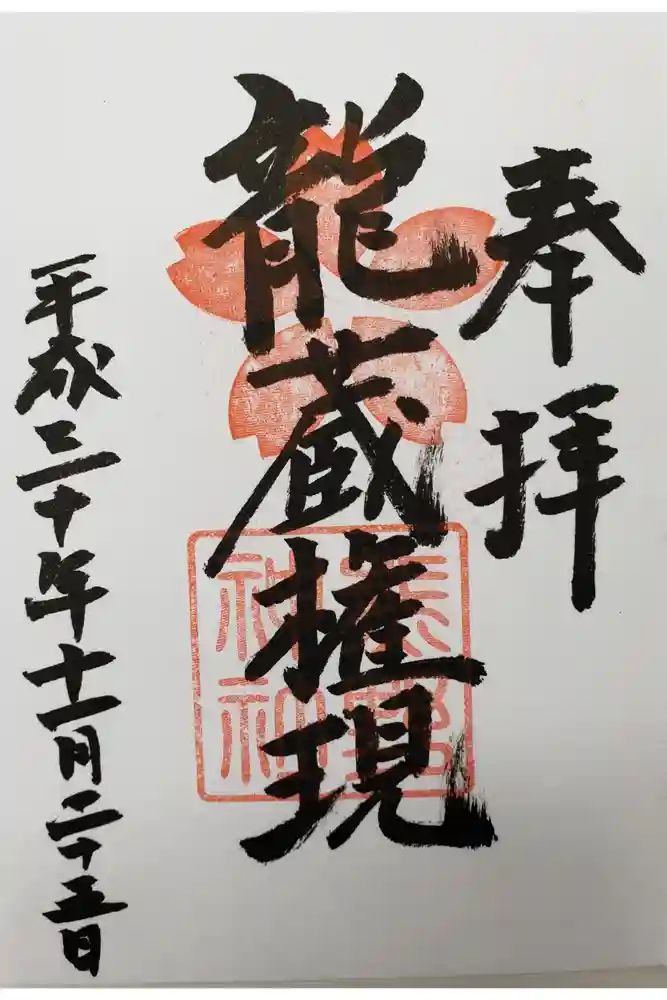 奉拝
龍蔵権現
平成三十年十一月二十五日